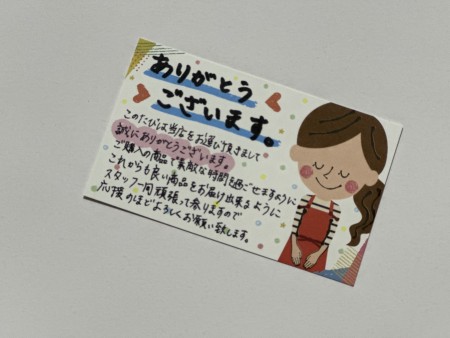 ありがとう
ございます。
このたびは当店をお選び頂きまして
誠にありがとうございます。
ご購入の商品で素敵な時間を過ごせますように
これからも良い商品をお届け出来るように
スタッフ一同頑張って参りますので
応援のほどよろしくお願い致します。